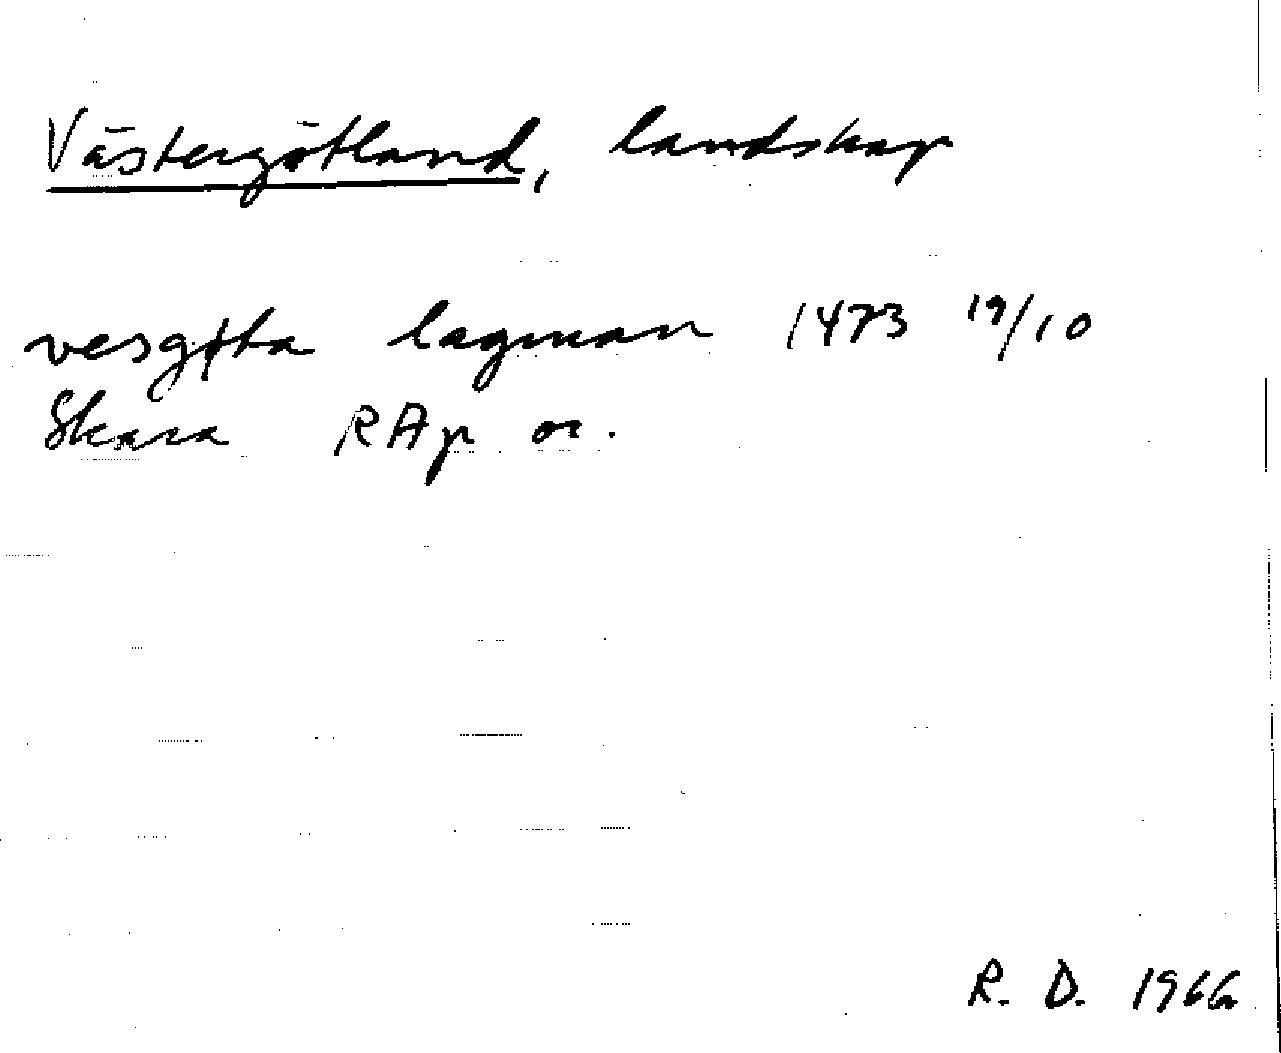 Västergötland, landskap
vesgøta lagman 1473 19/10
Skara RAp or.
R. D. 1966